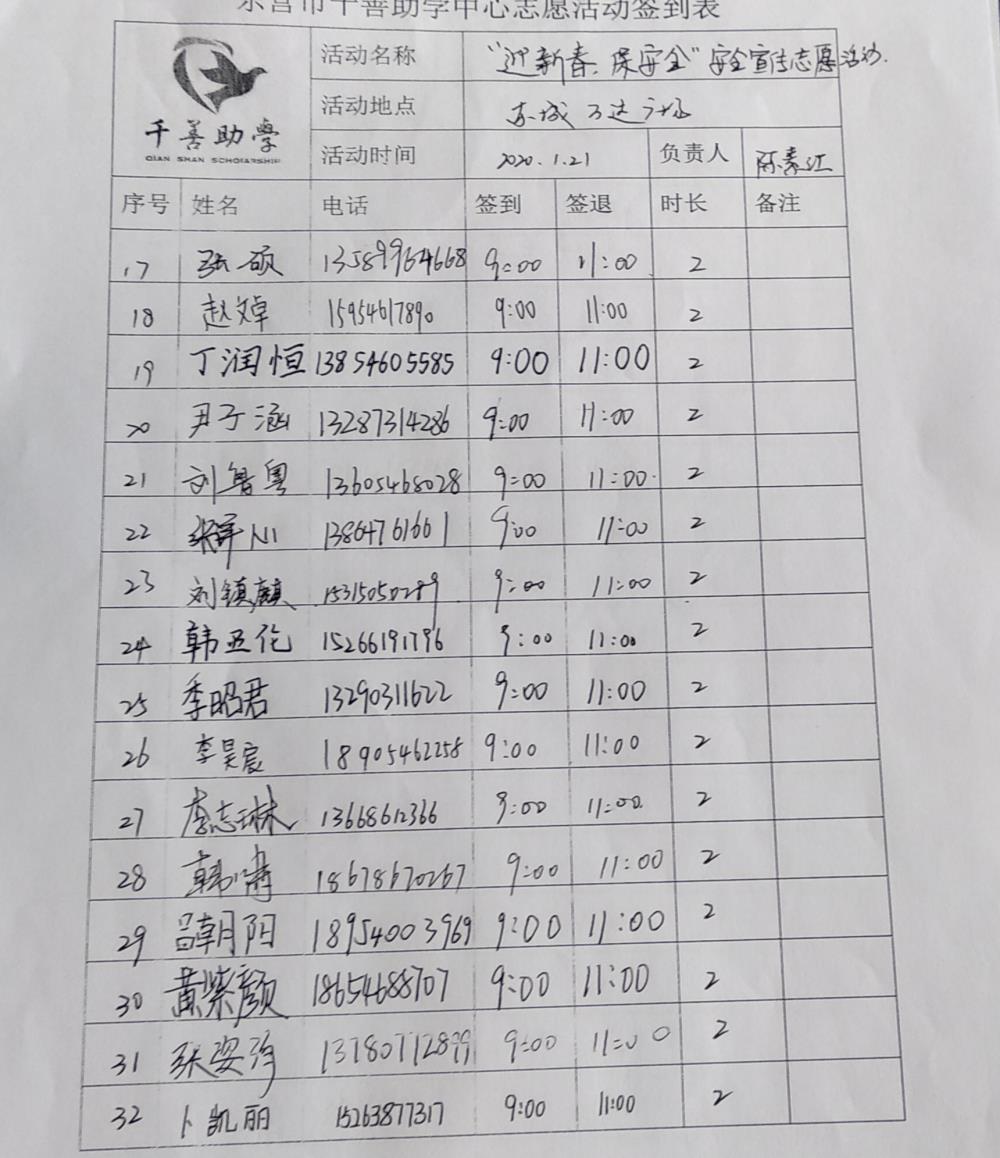 东营市千善助学中心志愿活动签到表
千善助學
QIAN SHAN SCHOLARSHIP
活动名称 "迎新春、保安全"安全宣传志愿活动.
活动地点 东城万达广场
活动时间 2020.1.21 负责人 陈素江
序号 姓名 电话 签到 签退 时长 备注
17 张硕 13589964668 9:00 11:00 2
18 赵文卓 15954617890 9:00 11:00 2
19 丁润恒 13854605585 9:00 11:00 2
20 尹子涵 13287314286 9:00 11:00 2
21 刘鲁粤 13605468028 9:00 11:00 2
22 13864761661 9:00 11:00 2
23 刘镇麒 15315050289 9:00 11:00 2
24 韩亚伦 15266191796 9:00 11:00 2
25 季昭君 13290311622 9:00 11:00 2
26 李昊宸 18905462258 9:00 11:00 2
27 李志琳 13668612366 9:00 11:00 2
28 韩啸 18678670267 9:00 11:00 2
29 吕朝阳 18954003969 9:00 11:00 2
30 黄紫颜 18654688707 9:00 11:00 2
31 张姿 13780772899 9:00 11:00 2
32 卜凯丽 15263877317 9:00 11:00 2